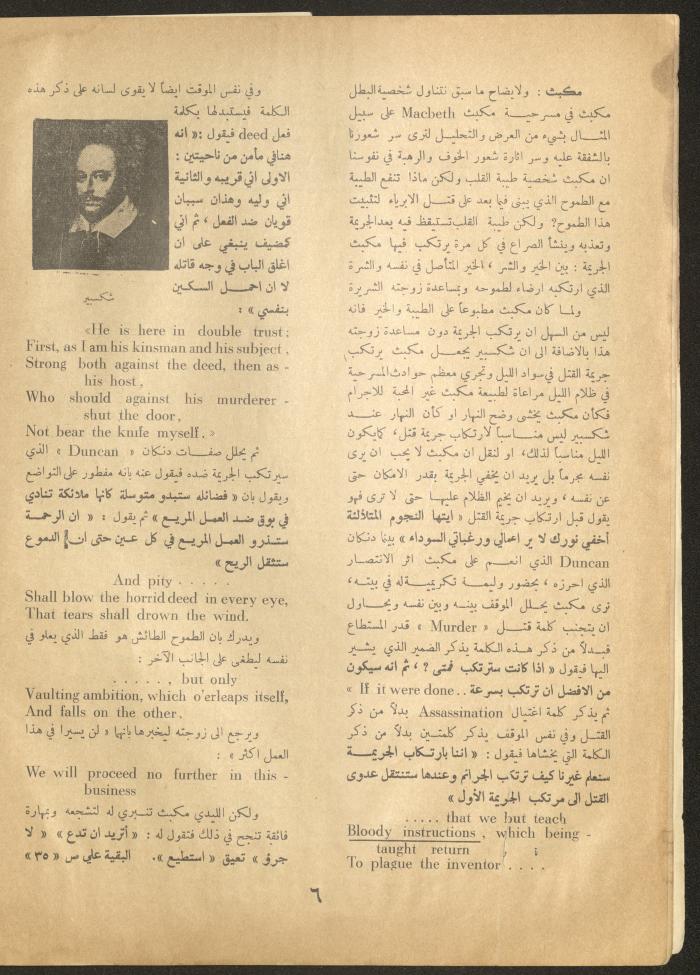 مكبث : ولايضاح ما سبق نتناول شخصية البطل
مكبث في مسرحيـــة مكبث Macbeth على سبيل
المثـــال بشيء من العرض والتحليـــل لترى سر شعورنا
بالشفقة عليه وسر اثارة شعور الخوف والرهبة في نفوسنا
ان مكبث شخصية طيبة القلب ولكن ماذا تنفع الطيبة
مع الطموح الذي يبنى فيا بعد على قتـــل الابرياء لتثبيت
هذا الطموح؟ ولكن طيبة القلب تستيقظ فيه بعد الجريمة
وتعذبه وينشأ الصراع في كل مرة يرتكب فيهـا مكبث
الجريمة : بين الخير والشر ، الخير المتأصل في نفسه والشرة
الذي ارتكبه ارضاء لطموحه وبمساعدة زوجته الشريرة
ولمـا كان مكبث مطبوعاً على الطيبة والخير فانه
ليس من السهل ان يرتكب الجريمة دون مساعدة زوجته
هذا بالاضافة الى ان شكسبير يجعـــل مكبث يرتكب
جريمة القتل في سواد الليل وتجري معظم حوادث المسرحية
في ظلام الليل مراعاة لطبيعة مكبث غير المحبة للاجرام
فكأن مكبث يخشى وضح النهار او كأن النهار عنـــد
شكسبير ليس منـــاسباً لارتكاب جريمة قتل، كما يكون
الليل مناسباً لذلك، او لنقل ان مكبث لا يحب ان يرى
نفسه مجرماً بل يريد ان يخفي الجريمة بقدر الامكان حتى
عن نفسه ، ويريد ان يخيم الظلام عليهـا حتى لا ترى فهو
يقول قبل ارتكاب جريمة القتل « ايتها النجوم المتلألئة
أخفي نورك لا ير اعمالي ورغباتي السوداء » بينما دنكان
Duncan الذي انعـــم على مكبث اثر الانتصـــار
الذي احرزه ، بحضور وليمـــة تكريميـــة له في بيتـــه،
نرى مكبث يحلـل الموقف بينـــه وبين نفسه ويحـــاول
ان يتجنب كلمة قتـــل « Murder » قدر المستطاع
فبـــدلاً من ذكر هذه الكلمة يذكر الضمير الذي يشـــير
اليها فيقول « اذا كانت سترتكب فمتى ? ، ثم انه سيكون
من الافضل ان ترتكب بسرعة .. If it were done »
ثم يذكر كلمة اغتيال Assassination بدلاً من ذكر
القتـــل وفي نفس الموقف يذكر كلمتـــين بدلاً من ذكر
الكلمة التي يخشاها فيقول : « اننا بارتكـاب الجريمـــة
سنعلم غيرنا كيف ترتكب الجرائم وعندها ستنتقل عدوى
القتل الى مرتكب الجريمة الأول »
. . . . . that we but teach
Bloody instructions , which being -
taught return
To plague the inventor . . . .
وفي نفس الموقت ايضاً لا يقوى لسانه على ذكر هذه
الكلمة فيستبدلها بكلمة
فعل deed فيقول :« انه
هنا في مأمن من ناحيتين :
الاولى اني قريبه والثانية
اني وليه وهذان سببان
قويان ضد الفعل ، ثم اني
كمضيف ينبغي على ان
اغلق الباب في وجه قاتله
لا ان احمـــل السكـــين
بنفسي » :
شكسبير
«He is here in double trust;
First, as I am his kinsman and his subject ,
Strong both against the deed, then as -
his host ,
Who should against his murderer -
shut the door,
Not bear the knife myself . »
ثم يحلل صفـــات دنكان « Duncan » الذي
سيرتكب الجريمة ضده فيقول عنه بانه مفطور على التواضع
ويقول بان « فضائله ستبدو متوسلة كانها ملائكة تنادي
في بوق ضد العمل المريـع » ثم يقول : « ان الرحمـــة
ستـــذرو العمل المريـع في كل عـــين حتى ان الدموع
ستثقل الريح »
And pity . . . . .
Shall blow the horrid deed in every eye,
That tears shall drown the wind.
ويدرك بان الطموح الطائش هو فقط الذي يعلو في
نفسه ليطغى على الجانب الآخر :
. . . . . , but only
Vaulting ambition, which o'erleaps itself,
And falls on the other .
ويرجع الى زوجته ليخبرها بانهـا « لن يسيرا في هذا
العمل اكثر » :
We will proceed no further in this -
business
ولكن الليدي مكبث تنـــبري له لتشجعه وبمهارة
فائقة تنجح في ذلك فتقول له : « أتريد ان تدع » « لا
جرؤ » تعيق « استطيع ». البقية على ص « ٣٥ »
٦